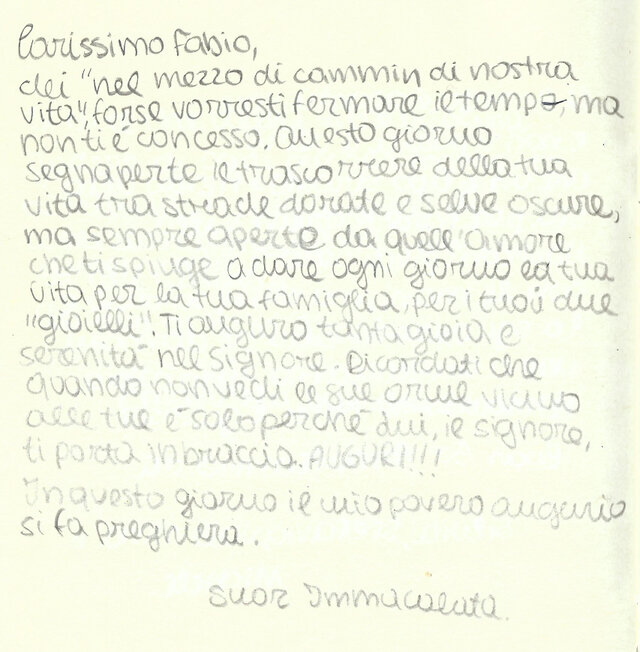 Carissimo Fabio,
sei "nel mezzo di cammin di nostra
vita", forse vorresti fermare il tempo, ma
non ti è concesso. Questo giorno
segna per te il trascorrere della tua
vita tra strade dorate e selve oscure,
ma sempre aperto da quell'amore
che ti spinge a dare ogni giorno la tua
vita per la tua famiglia, per i tuoi due
"gioielli". Ti auguro tanta gioia e
serenità nel Signore. Ricordati che
quando non vedi le sue orme vicino
alle tue è solo perché Lui, il Signore,
ti porta in braccio. AUGURI!!!
In questo giorno il mio povero augurio
si fa preghiera.
Suor Immacolata